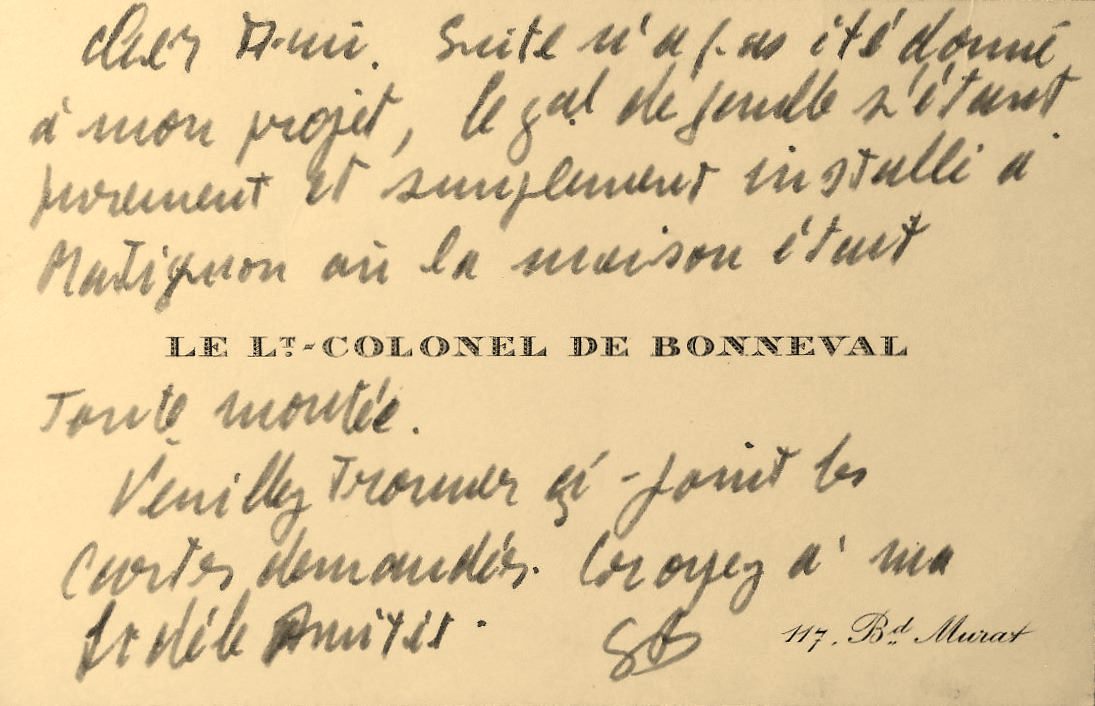 Cher Ami. Suite n'a pas été donné
à mon projet, le gal de Gaulle s'étant
purement et simplement installé à
Matignon où la maison était
LE LT-COLONEL DE BONNEVAL
Toute montée.
Veuillez trouver ci-joint les
cartes demandées. Croyez à ma
fidèle Amitié.
GB
117, Bd Murat